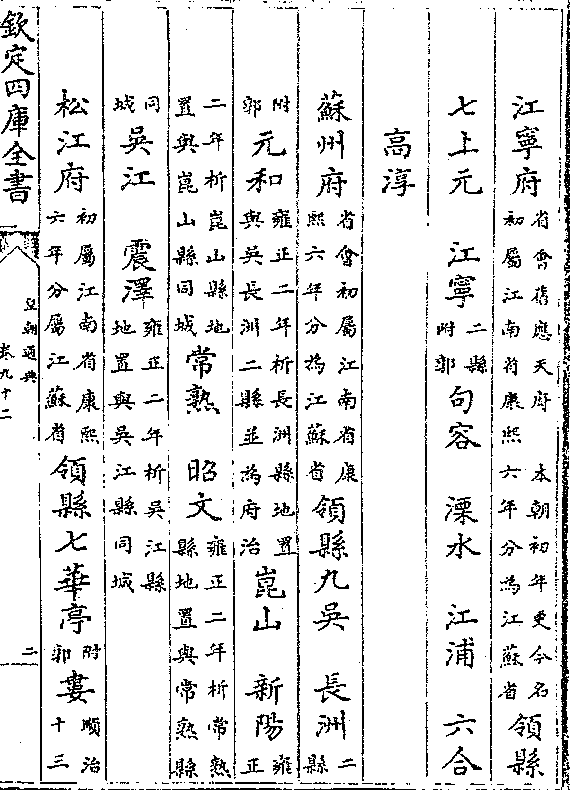 江寧府 省會舊應天府 本朝初年更今名初屬江南省康熙六年分為江蘇省 領縣
七上元 江寧 二縣附郭 句容 溧水 江浦 六合
高淳
蘇州府 省會初屬江南省康熙六年分為江蘇省 領縣九吳 長洲 二縣
附郭 元和 雍正二年析長洲縣地置與吳長洲二縣並為府治 崑山 新陽 雍正
二年析崑山縣地置與崑山縣同城 常熟 昭文 雍正二年析常熟縣地置與常熟縣
同城 吳江 震澤 雍正二年析吳江縣地置與吳江縣同城
松江府 初屬江南省康熙六年分屬江蘇省 領縣七華亭 附郭 婁 順治十三
欽定四庫全書
皇朝通典
卷九十二
二